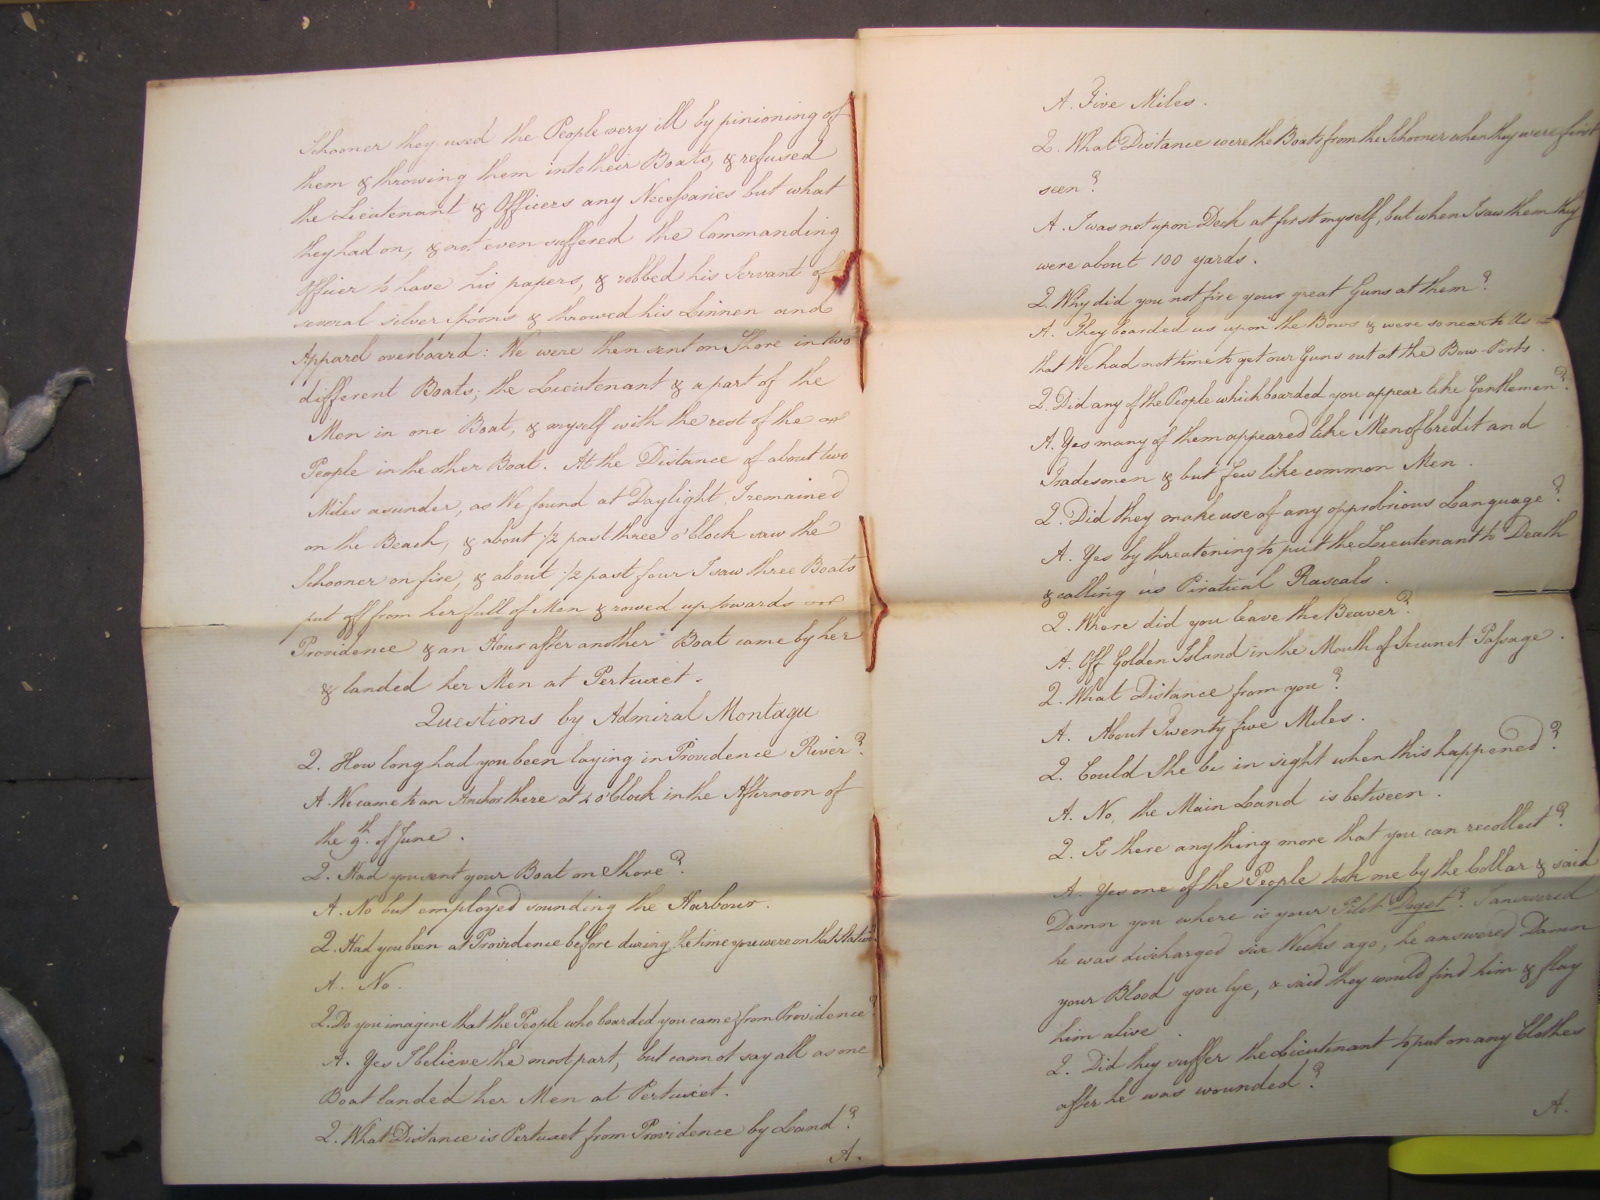 Schooner they used the People very ill by pinioning of
them & throwing them into their Boats, & refused
the Lieutenant & Officers any Necessaries but what
they had on, & not even suffered the Commanding
Officer to have his papers, & robbed his Servant of
several silver spoons & throwed his Linnen and
Apparel overboard: We were then sent on Shore in two
different Boats; the Lieutenant & a part of the
Men in one Boat, & myself with the rest of the
People in the other Boat. At the Distance of about two
Miles asunder, as We found at Daylight. I remained
on the Beach, & about 1/2 past three o'Clock saw the
Schooner on fire, & about 1/2 past four I saw three Boats
put off from her full of Men & rowed up towards
Providence & an Hour after another Boat came by her
& landed her Men at Pertuxet.
Questions by Admiral Montagu
Q. How long had you been laying in Providence River?
A. We came to an Anchor there at 4 o'Clock in the Afternoon of
the 9th. of June.
Q. Had you sent your Boat on Shore?
A. No but employed sounding the Harbour.
Q. Had you been at Providence before during the time you were on that Station?
A. No.
Q. Do you imagine that the People who boarded you came from Providence?
A. Yes I believe the most part, but cannot say all as one
Boat landed her Men at Pertuxet.
Q. What Distance is Pertuxet from Providence by Land?
A.
A. Five Miles.
Q. What Distance were the Boats from the Schooner when they were first
seen?
A. I was not upon Deck at first myself, but when I saw them they
were about 100 yards.
Q. Why did you not fire your great Guns at them?
A. They boarded us upon the Bows & were so near to Us
that We had not time to get our Guns out at the Bow-Ports.
Q. Did any of the People which boarded you appear like Gentlemen?
A. Yes many of them appeared like Men of Credit and
Tradesmen & but few like common Men.
Q. Did they make use of any opprobrious Language?
A. Yes by threatening to put the Lieutenant to Death
& calling us Piratical Rascals.
Q. Where did you leave the Beaver?
A. Off Golden Island in the Mouth of Secunet Passage.
Q. What Distance from you?
A. About Twenty five Miles.
Q. Could She be in sight when this happened?
A. No, the Main Land is between.
Q. Is there any thing more that you can recollect?
A. Yes one of the People took me by the Collar & said
Damn you where is your Pilot Daget? I answered
he was discharged six Weeks ago, he answered Damn
your Blood you lye, & said they would find him & flay
him alive.
Q. Did they suffer the Lieutenant to put on any Clothes
after he was wounded?
A.